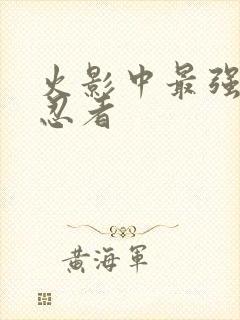 火影中最强
忍者
黄海軍